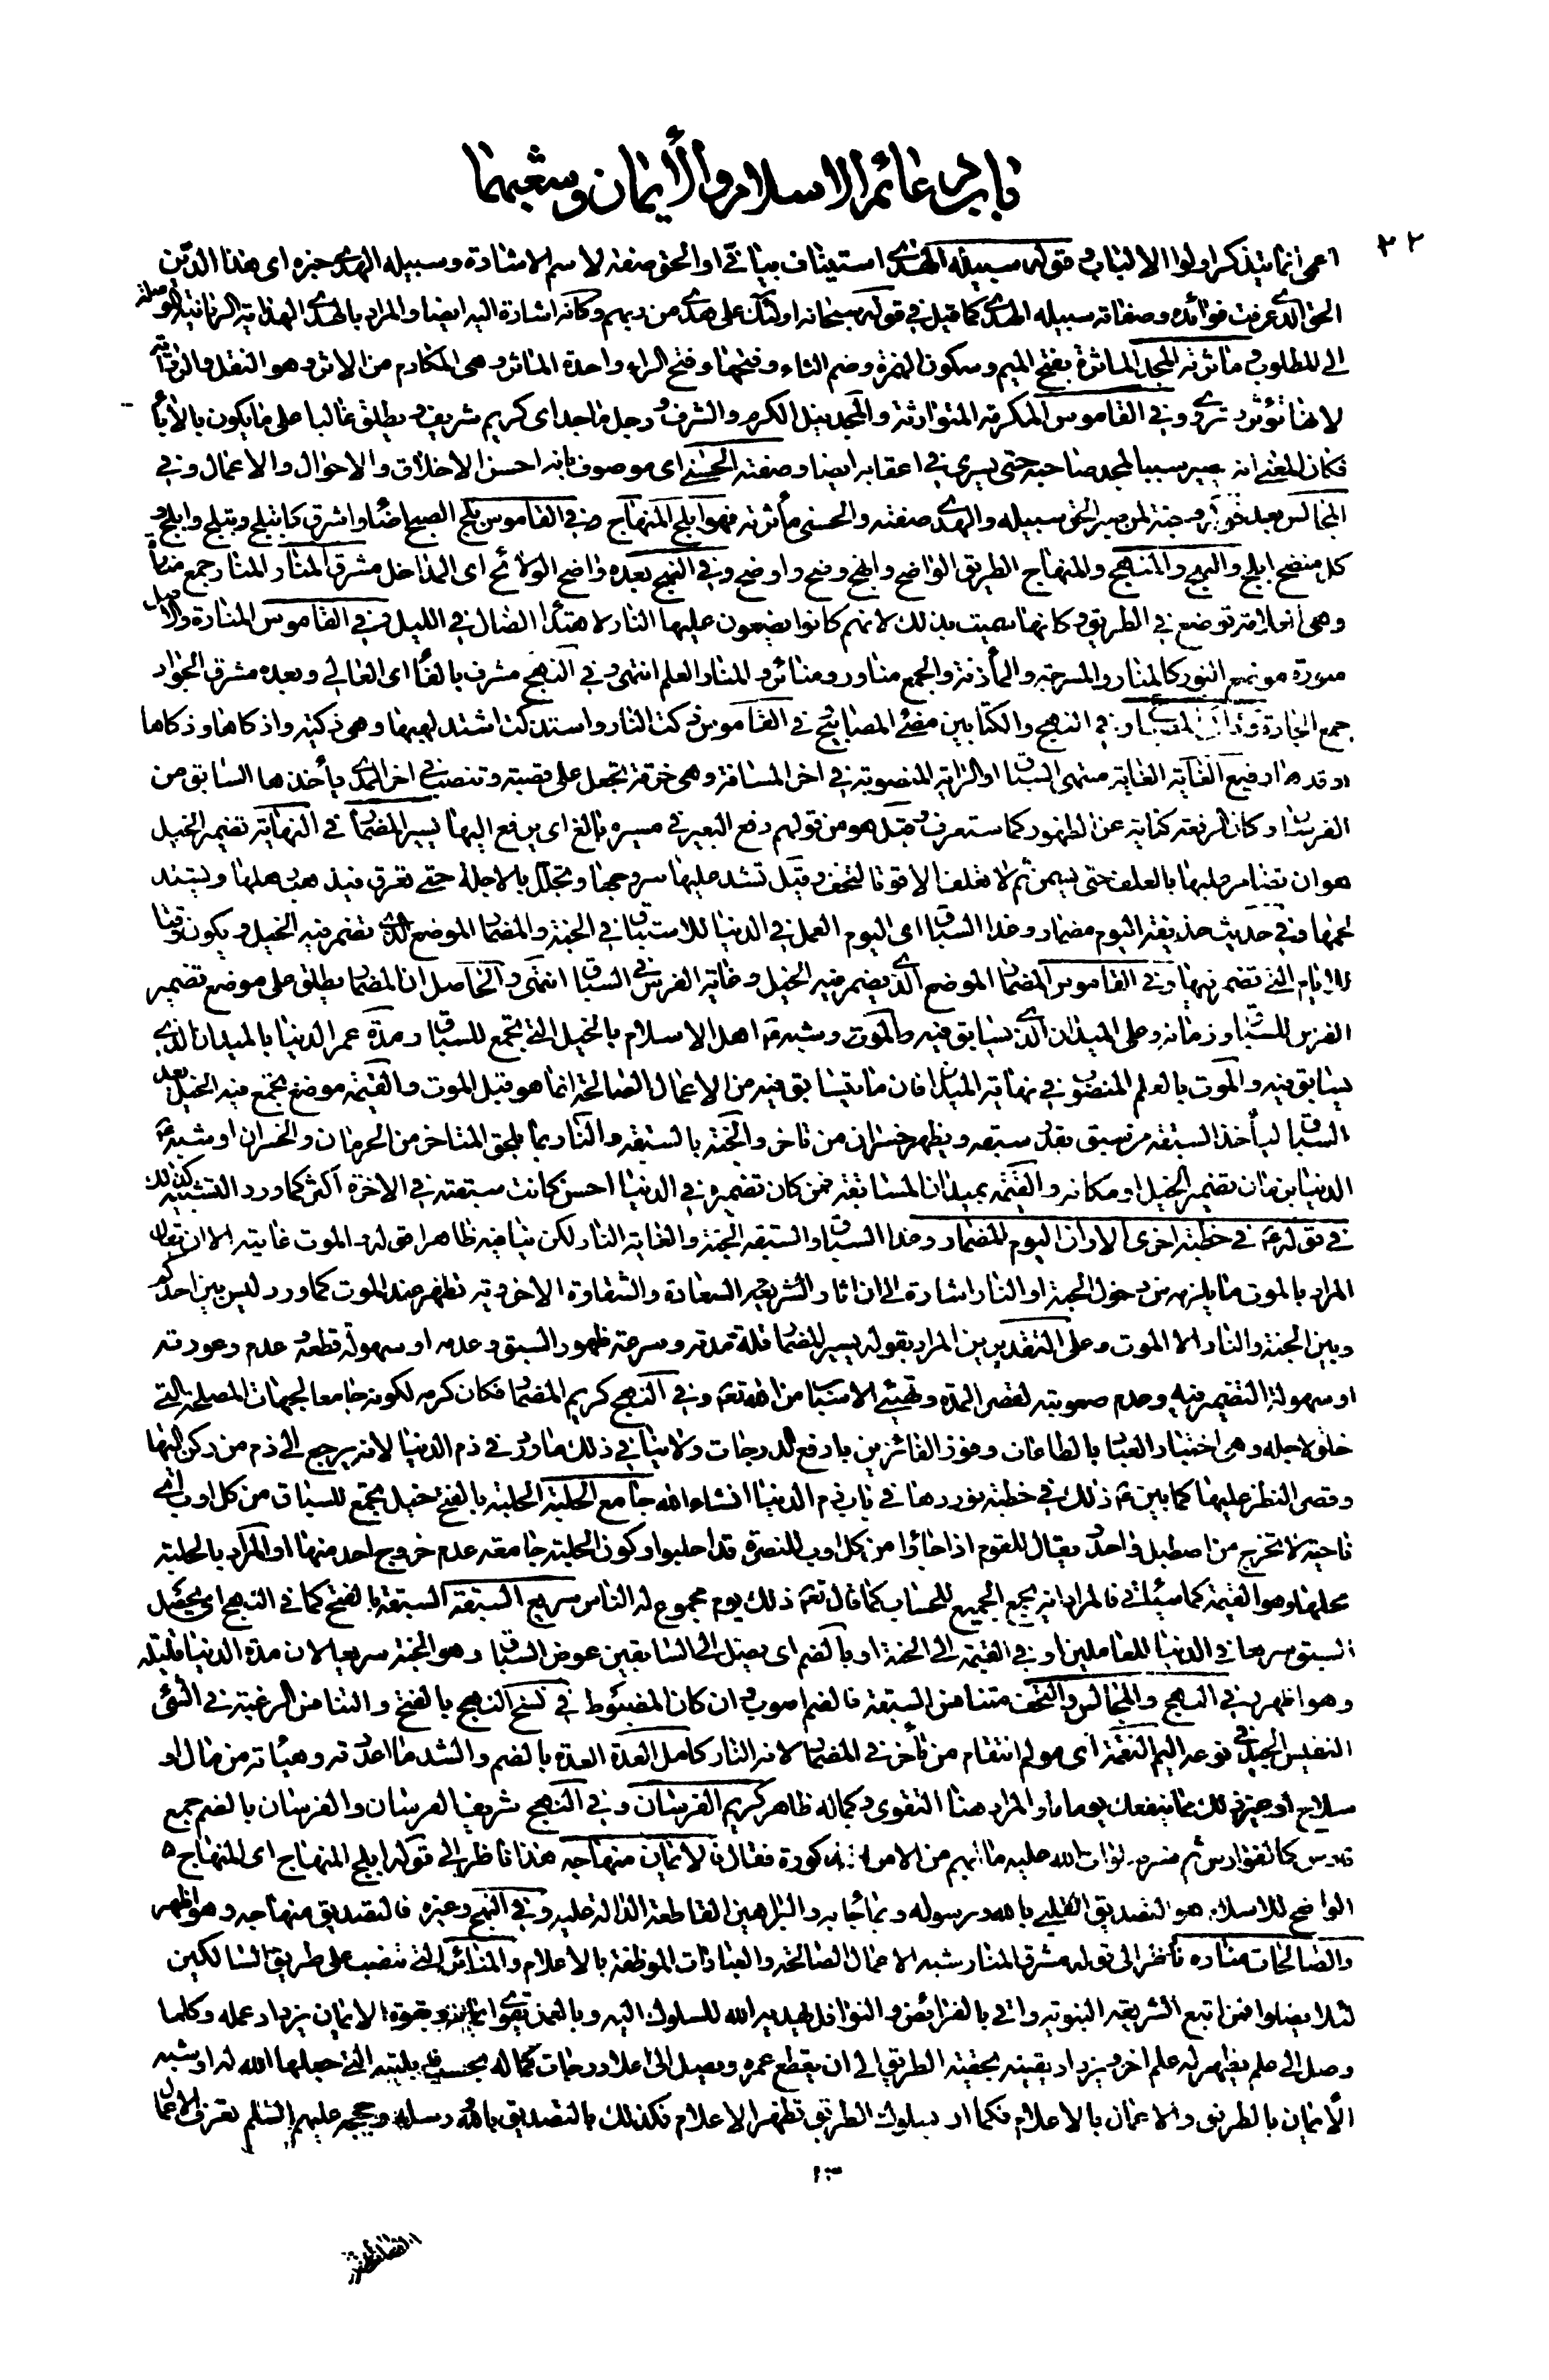 باب دعائم الاسلام والأيمان وشعبهما
٢٢
اعمى انما يتذكر اولوا الالباب وقوله سبيله الهدى استيناف بياني او الحق صفة لاسم الاشارة وسبيله الهدى خبره اى هذا الدّين
الحق الذى عرفت فوائده وصفاته سبيله الهدى كما قيل في قوله سبحانه اولئك على هدى من ربهم وكانه اشارة اليه ايضا والمراد بالهدى الهداية الربانية الموصلة
الى المطلوب ومأثرته المجد الماثرة بفتح الميم وسكون الهمزة وضم الثاء وفتحها وفتح الراء واحدة المآثر وهى المكارم من الاثر وهو النقل والرواية
لانها تؤثر وتروى وفي القاموس المكرمة المتوارثة والمجد نيل الكرم والشرف ورجل ماجد اى كريم شريف ويطلق غالبا على ما يكون بالأباء
فكان المعنى انه يصير سببا لمجد صاحبه حتى يسرى في اعقابه ايضا وصفته الحسنى اى موصوف بانه احسن الاخلاق والاحوال والاعمال وفي
المجالس بعد قوله وجنة لمن صبر الحق سبيله والهدى صفته والحسنى مأثرته فهو ابلج المنهاج في القاموس بلج الصبح اضاء واشرق كابتلج وتبلج وابلج و
كل متضح ابلج والنهج والمنهج والمنهاج الطريق الواضح وانهج وضح واوضح وفي النهج بعده واضح الولائج اى المداخل مشرق المنار المنار جمع منارة
وهى العلامة توضع في الطريق وكانها سميت بذلك لانهم كانوا يضعون عليها النار لاهتداء الضال في الليل وفي القاموس المنارة والاصل
منورة موضع النور كالمنار والمسرجة والمأذنة والجمع مناور ومنائر والمنار العلم انتهى وفي النهج مشرف بالفاء اى العالي وبعده مشرق الجواد
جمع الجادة وفي النهج والكتابين مضئ المصابيح في القاموس ذكت النار واستذكت اشتد لهبها وهى ذكية واذكاها وذكاها
اوقدها رفيع الغاية الغاية منتهى السباق او الراية المنصوبة في اخر المسافة وهى خرقة تجعل على قصبة وتنصب في اخر المدى يأخذها السابق من
الفرسان وكان الرفعة كناية عن الظهور كما ستعرف وقيل هو من قولهم رفع البعير في سيره بالغ اى يرفع اليها يسير المضمار في النهاية تضمير الخيل
هو ان تضامر عليها بالعلف حتى تسمن ثم لا تعلف الا قوتا لتخف وقيل تشد عليها سروجها وتجلل بالاجلة حتى تعرق فيذهب رهلها ويشتد
لحمها وفي حديث حذيفة اليوم مضمار وغدا السباق اى اليوم العمل في الدنيا للاستباق في الجنة والمضمار الموضع الذى تضمر فيه الخيل ويكون وقتا
للايام التى تضمر فيها وفي القاموس المضمار الموضع الذى يضمر فيه الخيل وغاية الفرس في السباق انتهى والحاصل ان المضمار يطلق على موضع تضمير
الفرس للسباق وزمانه وعلى الميدان الذى يسابق فيه والموت وشبه ع اهل الاسلام بالخيل التى تجتمع للسباق ومدة عمر الدنيا بالميدان الذى
يسابق فيه والموت بالعلم المنصوب في نهاية الميدان فان ما يتسابق فيه من الاعمال الصالحة انما هو قبل الموت والقيمة موضع تجتمع فيه الخيل بعد
السباق ليأخذ السبقة من سبق بقدر سبقه ويظهر خسران من تاخر والجنة بالسبقة والنار بما يلحق المتاخر من الحرمان والخسران او شبه ع
الدنيا بزمان تضمير الخيل او مكانه والقيمة بميدان المسابقة فمن كان تضميره في الدنيا احسن كانت سبقته في الاخرة اكثر كما ورد التشبيه كذلك
في قوله ع في خطبة اخرى الا وان اليوم المضمار وغدا السباق والسبقة الجنة والغاية النار لكن ينافيه ظاهرا قوله والموت غايته الا ان يقال
المراد بالموت ما يلزمه من دخول الجنة او النار اشارة الى ان اثار الشريعة السعادة والشقاوة الاخروية تظهر عند الموت كما ورد ليس بين احدكم
وبين الجنة والنار الا الموت وعلى التقديرين المراد بقوله يسير المضمار قلة مدته وسرعة ظهور السبق وعدمه او سهولة قطعه وعدم وعورته
او سهولة التضمير فيه وعدم صعوبته لقصر المدة وتهيئ الاسباب من الله تعم وفي النهج كريم المضمار فكان كرمه لكونه جامعا لجهات المصلحة التى
خلق لاجله وهى اختبار العباد بالطاعات وفوز الفائزين بارفع الدرجات ولا ينافي ذلك ما ورد في ذم الدنيا لانه يرجع الى ذم من ركن اليها
وقصر النظر عليها كما بين ع ذلك في خطبة نوردها في باب ذم الدنيا انشاء الله جامع الحلبة الحلبة بالفتح خيل تجتمع للسباق من كل اوب اى
ناحية لا تخرج من اصطبل واحد ويقال للقوم اذا جاؤا من كل اوب للنصرة قد احلبوا وكون الحلبة جامعة عدم خروج احد منها او المراد بالحلبة
محلها وهو القيمة كما سيأتي فالمراد انه يجمع الجميع للحساب كما قال تعم ذلك يوم مجموع له الناس سريع السبقة السبقة بالفتح كما في النهج اى يحصل
السبق سريعا في الدنيا للعاملين او في القيمة الى الجنة او بالضم اى يصل الى السابقين عوض السباق وهو الجنة سريعا لان مدة الدنيا قليلة
وهو اظهر وفي النهج والمجالس والتحف متنافس السبقة فالضم اصوب وان كان المضبوط في نسخ النهج بالفتح والتنافس الرغبة في الشئ
النفيس الجيد في نوعه اليم النقمة اى مولم انتقام من تأخر في المضمار لانه النار كامل العدة العدة بالضم والشد ما اعددته وهيأته من مال او
سلاح او غير ذلك مما ينفعك يوما ما والمراد هنا التقوى وكماله ظاهر كريم الفرسان وفي النهج شريف الفرسان والفرسان بالضم جمع
فارس كالفوارس ثم فسر صلوات الله عليه ما ابهم من الامور المذكورة فقال فالايمان منهاجه هذا ناظر الى قوله ابلج المنهاج اى المنهاج
الواضح للاسلام هو التصديق القلبى بالله وبرسوله وبما جاء به والبراهين القاطعة الدالة عليه وفي النهج وغيره فالتصديق منهاجه وهو اظهر
والصالحات مناره ناظر الى قوله مشرق المنار شبه الاعمال الصالحة والعبادات الموظفة بالاعلام والمنائر التى تنصب على طريق السالكين
لئلا يضلوا فمن اتبع الشريعة النبوية واتى بالفرائض والنوافل يهديه الله للسلوك اليه وبالعمل يقوى ايمانه وبقوة الايمان يزداد عمله وكلما
وصل الى علم يظهر له علم اخر ويزداد يقينه بحقية الطريق الى ان يقطع عمره ويصل الى اعلا درجات كماله بحسب قابليته التى جعلها الله له او شبه
الأيمان بالطريق والاعمال بالاعلام فكما ان بسلوك الطريق تظهر الاعلام فكذلك بالتصديق بالله ورسله وحججه عليهم السلم تعرف الاعمال
١٣